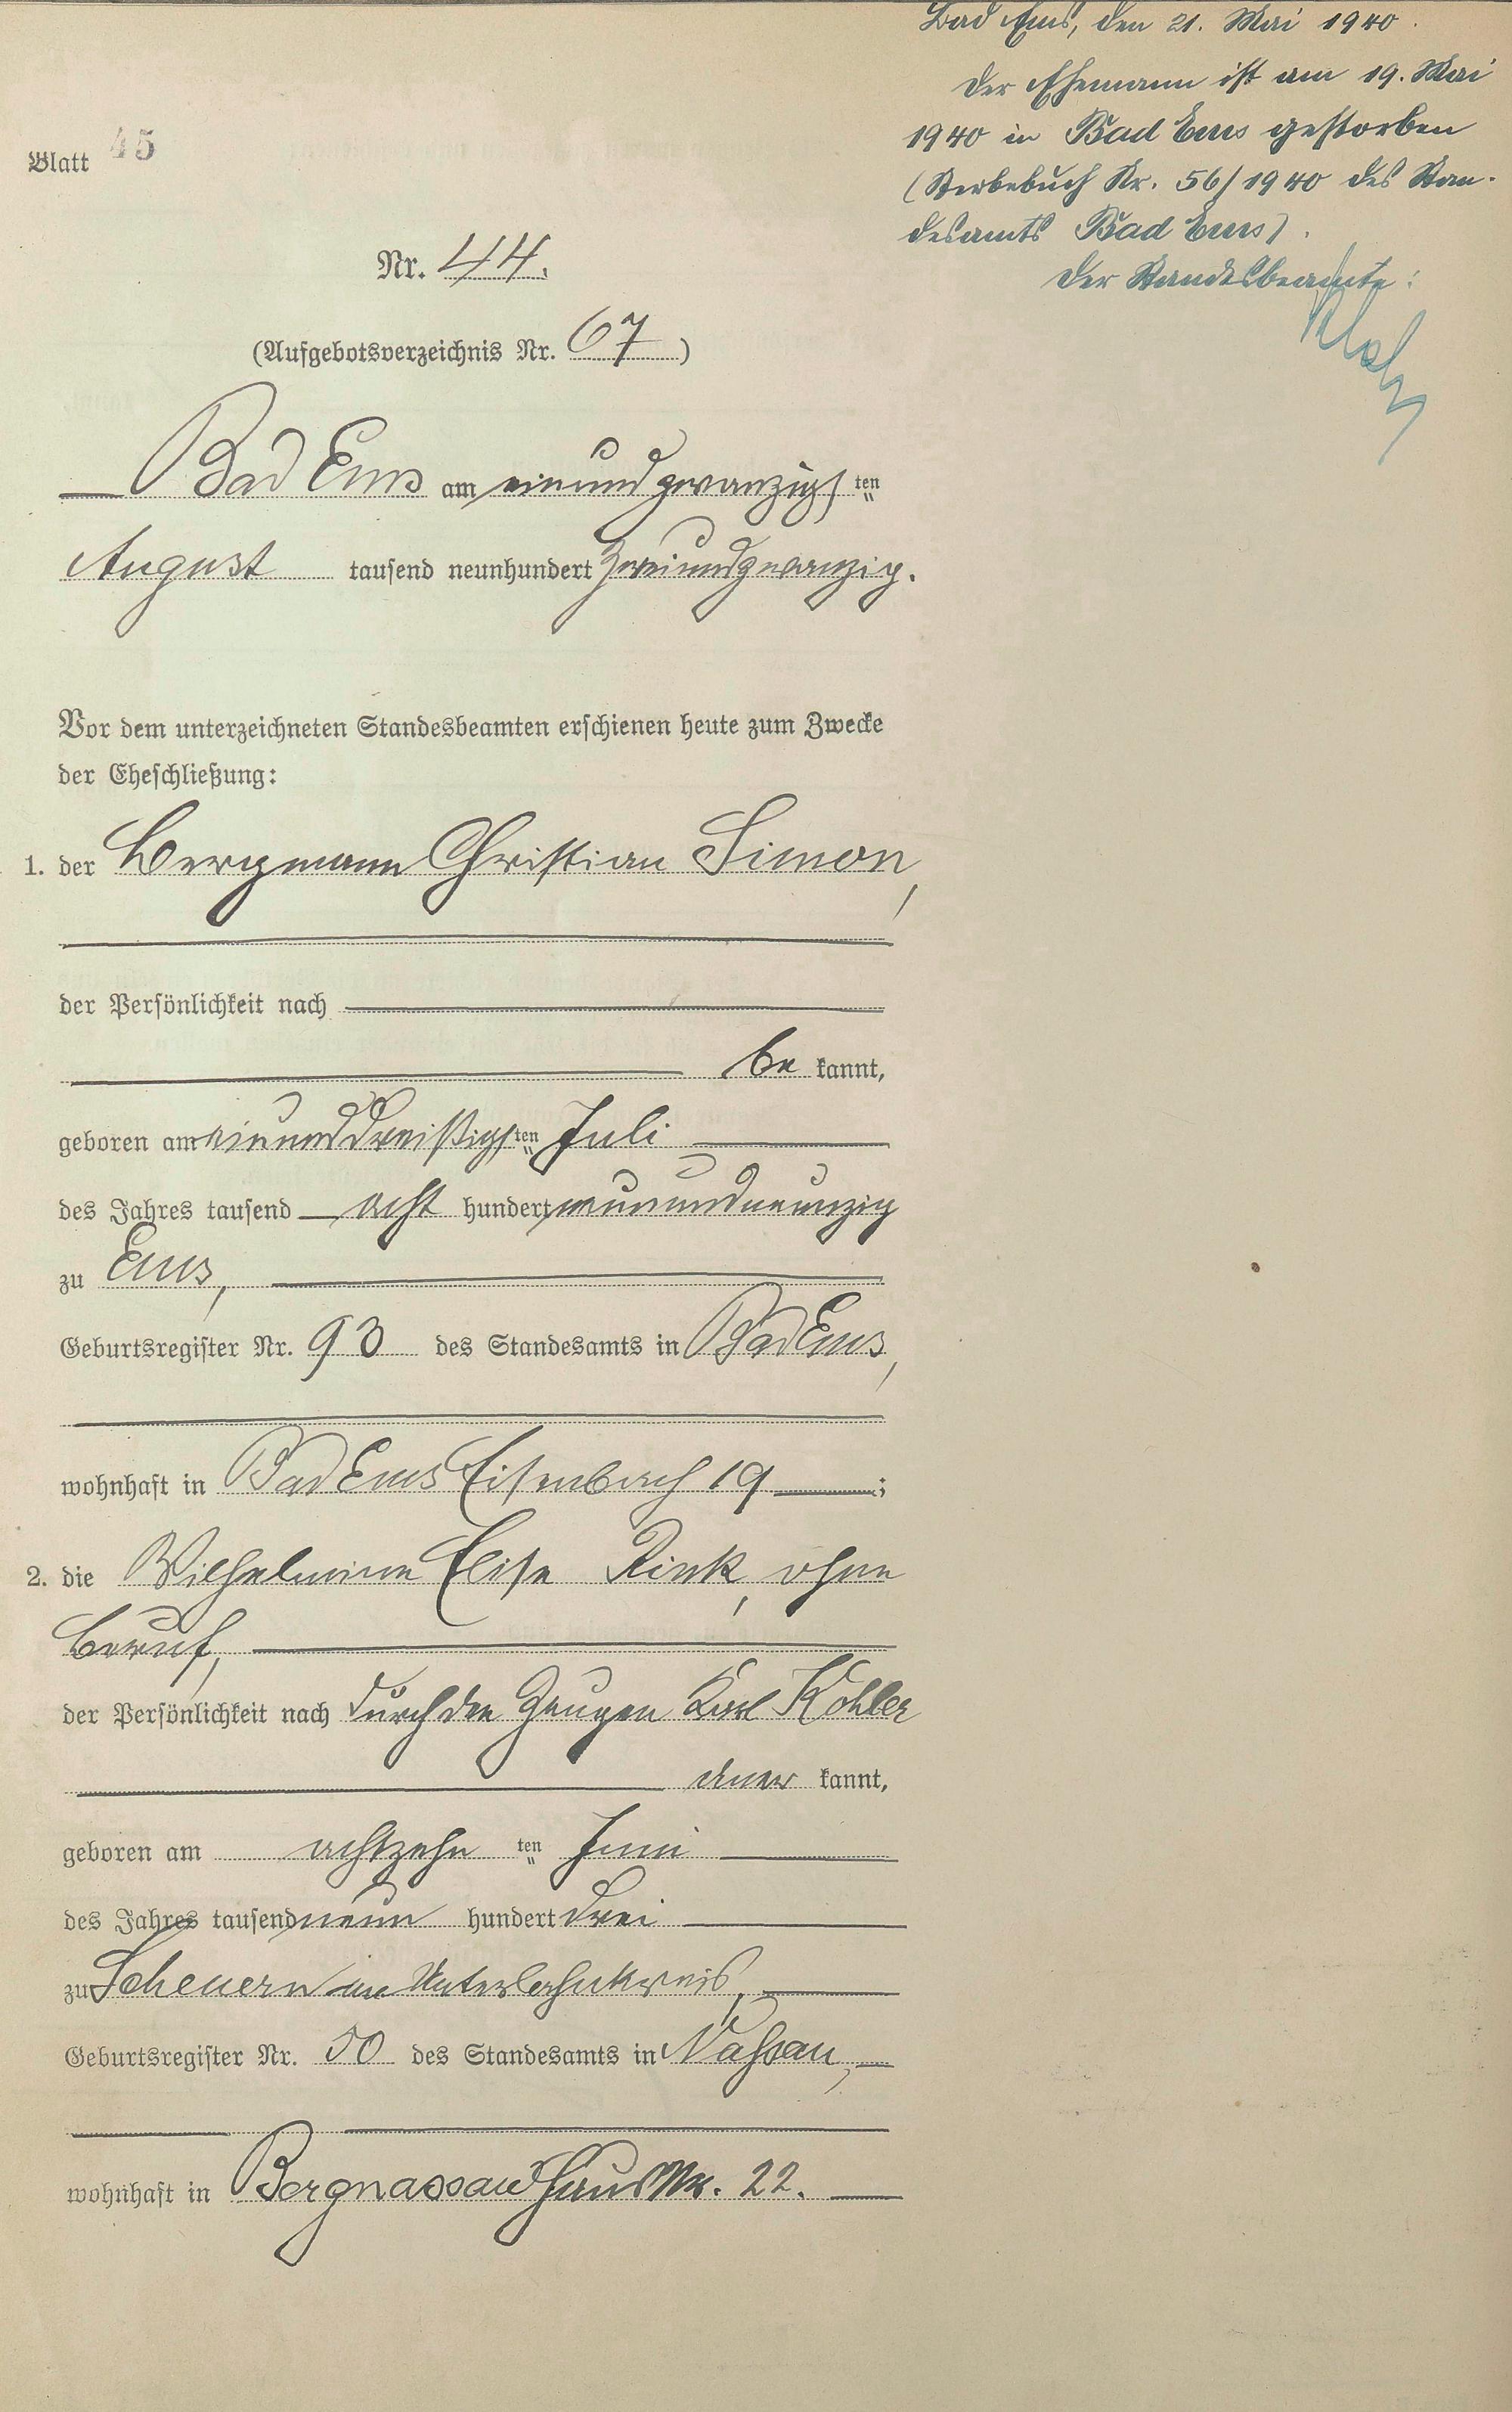 Bad Ems, den 21. Mai 1940.
Der Ehemann ist am 19. Mai
1940 in Bad Ems gestorben
(Sterbebuch Nr. 56/1940 des Stan-
desamts Bad Ems).
Der Standesbeamte:
Blatt 45
Nr. 44.
(Aufgebotsverzeichnis Nr. 67)
Bad Ems am einundzwanzigsten
August tausend neunhundert zweiundzwanzig.
Vor dem unterzeichneten Standesbeamten erschienen heute zum Zwecke
der Eheschließung:
1. der Bergmann Christian Simon,
der Persönlichkeit nach
be kannt,
geboren am einunddreißigsten Juli
des Jahres tausend acht hundert neunundneunzig
zu Ems,
Geburtsregister Nr. 93 des Standesamts in Bad Ems,
wohnhaft in Bad Ems Eisenbach 19;
2. die Wilhelmine Elise Rink, ohne
Beruf,
der Persönlichkeit nach durch den Zeugen Karl Köhler
aner kannt,
geboren am achtzehn ten Juni
des Jahres tausend neun hundert drei
zu Scheuern im Unterlahnkreis,
Geburtsregister Nr. 50 des Standesamts in Nassau,
wohnhaft in Bergnassau Haus Nr. 22.